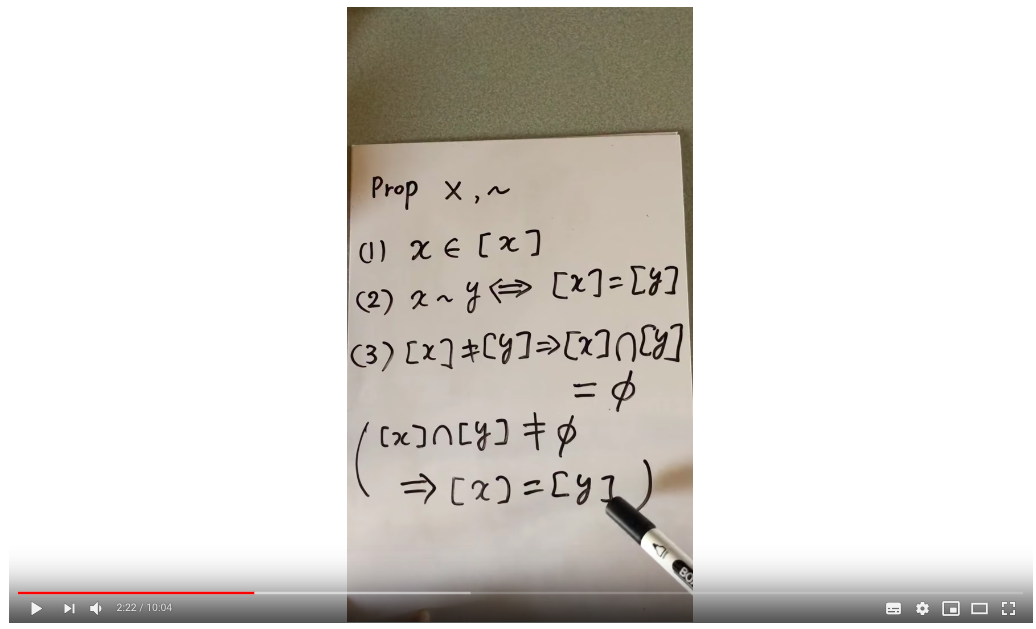 Prop X, ~
(1) x ∈ [x]
(2) x ~ y ⇔ [x] = [y]
(3) [x] ≠ [y] ⇒ [x] ∩ [y]
= ϕ
( [x] ∩ [y] ≠ ϕ
⇒ [x] = [y] )
2:22 / 10:04